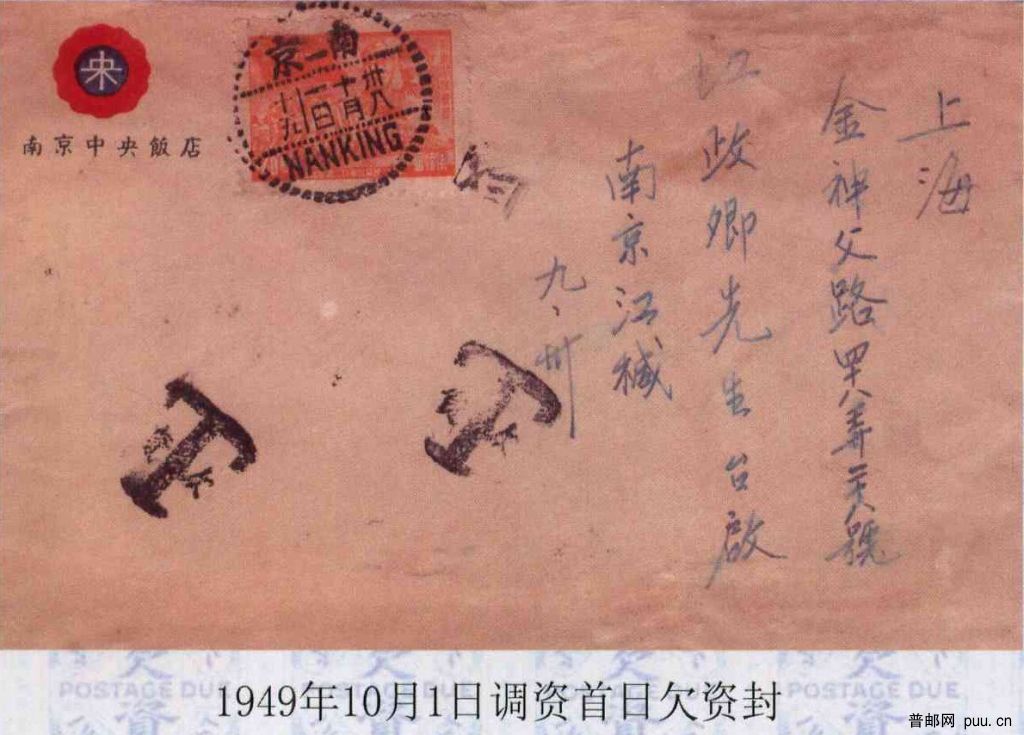 央
南京中央飯店
南京
卅八
十月
一日
十九
NANKING
上海
金神父路
江政卿先生台啟
南京江緘
九、卅
POSTAGE DUE
POSTAGE DUE
欠資
1949年10月1日调资首日欠资封
普邮网 puu.cn